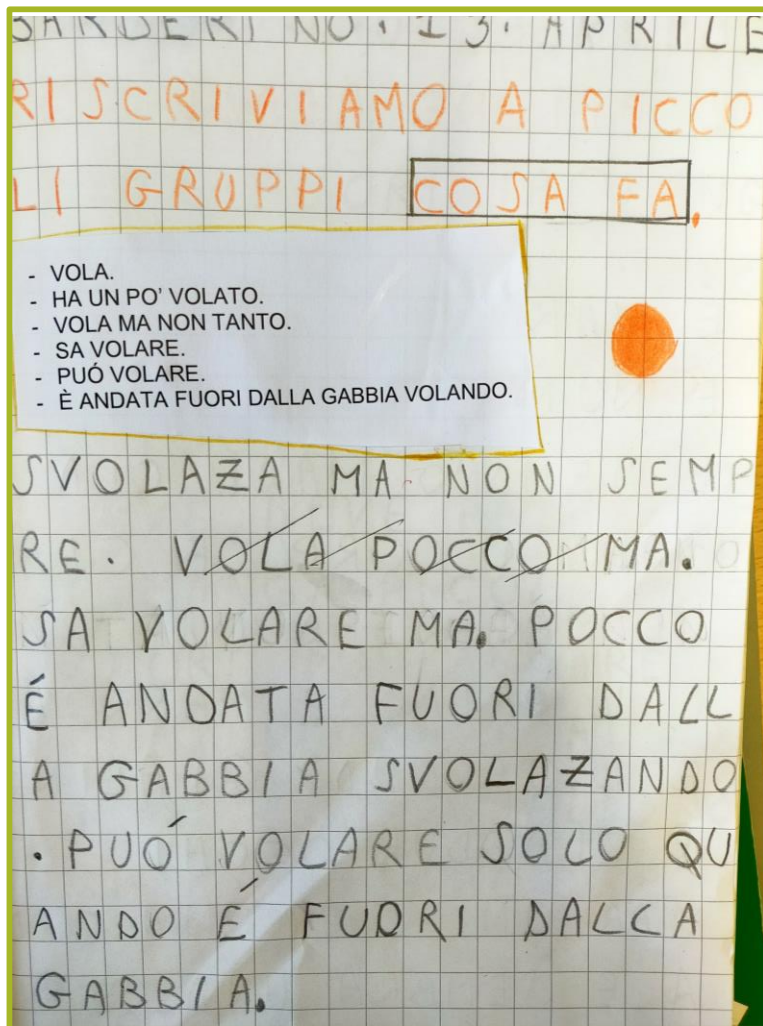 BARBERINO. 13. APRILE
RISCRIVIAMO A PICCO
LI GRUPPI COSA FA.
- VOLA.
- HA UN PO' VOLATO.
- VOLA MA NON TANTO.
- SA VOLARE.
- PUÓ VOLARE.
- È ANDATA FUORI DALLA GABBIA VOLANDO.
SVOLAZA MA NON SEMP
RE. VOLA POCCO MA.
SA VOLARE MA. POCCO
É ANDATA FUORI DALL
A GABBIA SVOLAZANDO
. PUÓ VOLARE SOLO QU
ANDO É FUORI DALLA
GABBIA.